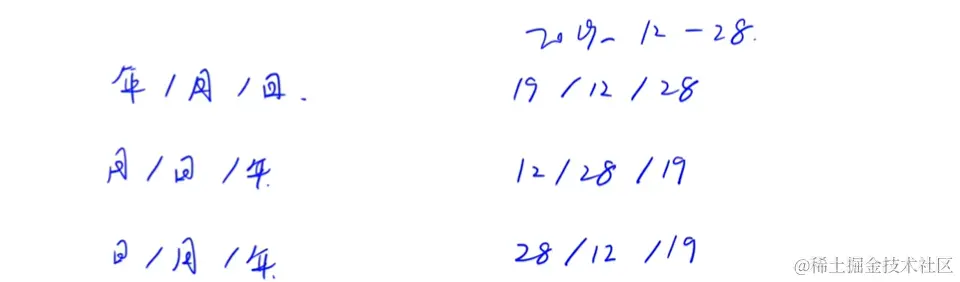 2019-12-28.
年/月/日. 19/12/28
月/日/年. 12/28/19
日/月/年. 28/12/19
@稀土掘金技术社区